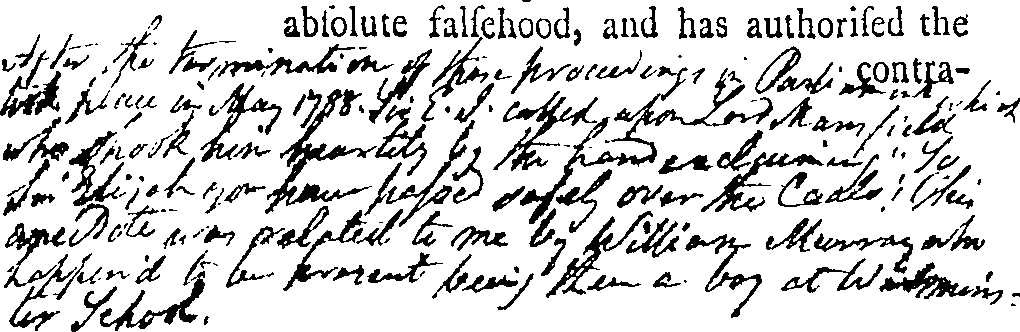 abſolute falſehood, and has authoriſed the
contra-
After the termination of those proceedings in Parliament which
took place in May 1788. Sir E. I. called upon Lord Mansfield
who shook him heartily by the hand exclaiming "So
Sir Elijah you have passed safely over the Coals! This
anecdote was related to me by William Murray who
happen'd to be present being then a boy at Westmins-
ter School.